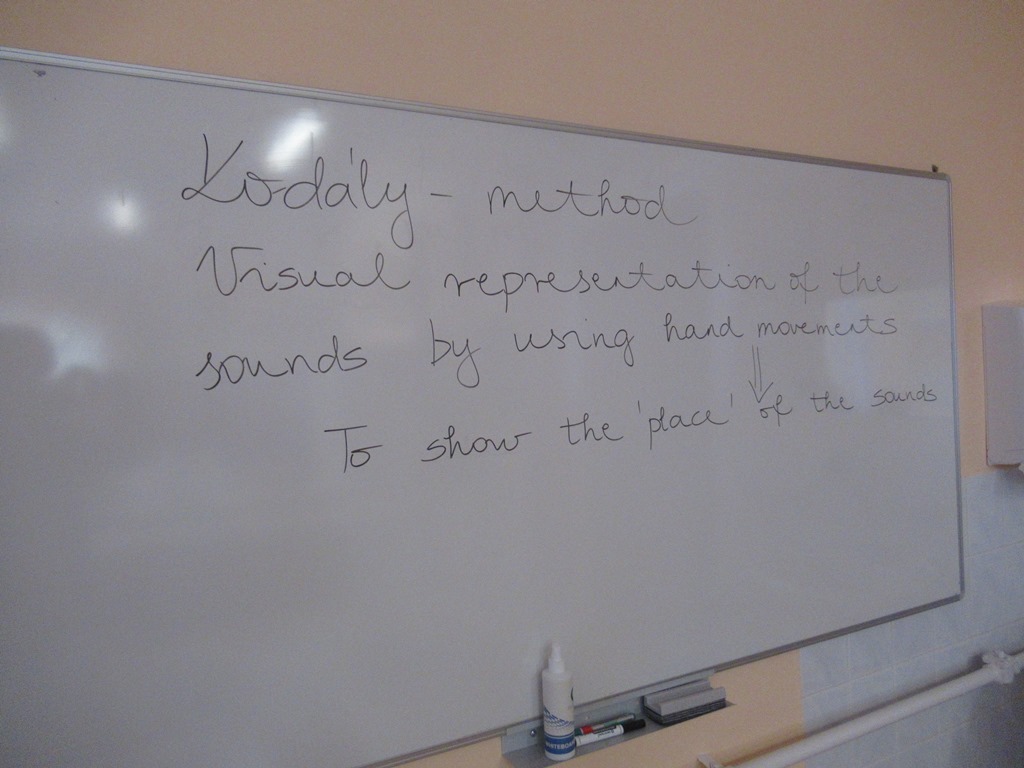 Kodály - method
Visual representation of the
sounds by using hand movements
⇓
To show the 'place' of the sounds